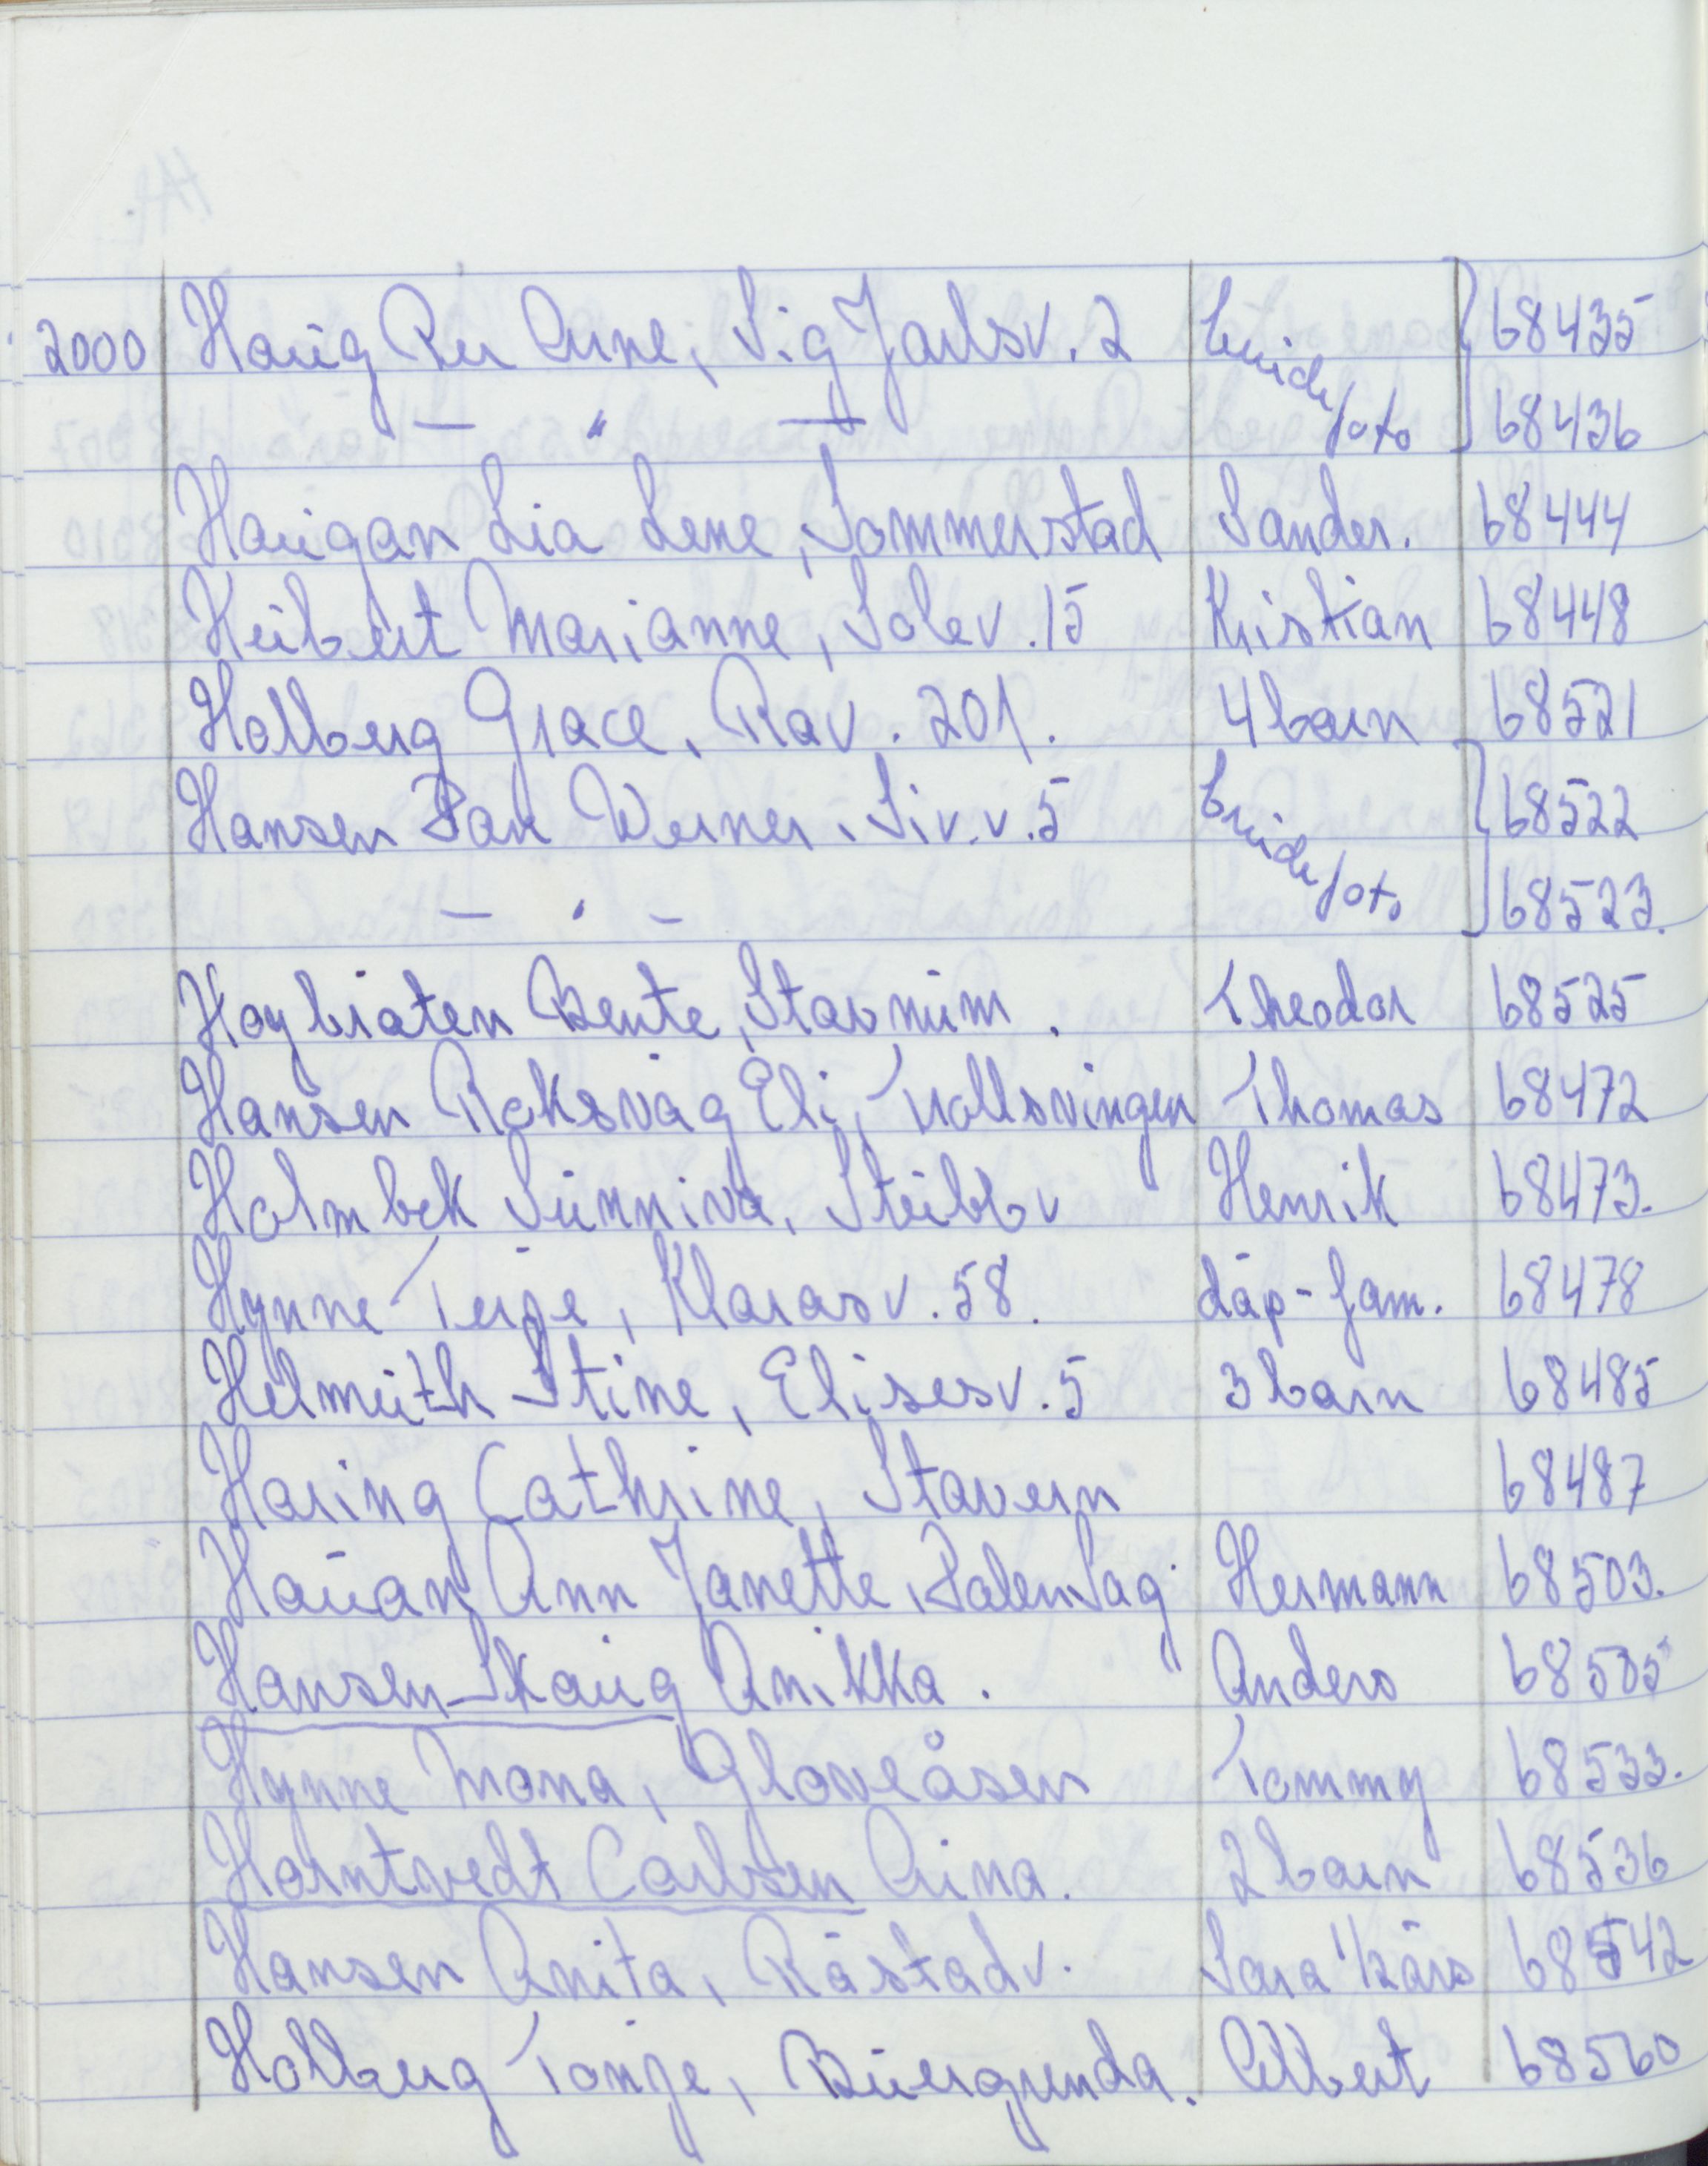 2000 Haug Per Arne, Sig Jarlsv. 2 brude 68435
— " — foto 68436
Haugan Lia Lene, Sommerstad Sander. 68444
Heibert Marianne, Solev. 15 Kristian 68448
Holberg Grace, Rav. 201. 4 barn 68521
Hansen Jan Werner, Siv. v. 5 brude 68522
— " — foto 68523.
Høybråten Bente, Stavnum. Theodor 68525
Hansen Roksvåg Eli, Trollsvingen Thomas 68472
Holmbek Sunniva, Stubbv Henrik 68473.
Hynne Terje, Klarasv. 58. dåp-fam. 68478
Helmuth Stine, Elisesv. 5 3 barn 68485
Haring Cathrine, Stavern 68487
Hauan Ann Janette, Hermann 68503.
Hansen-Skaug Anikka. Anders 68505
Hynne Mona, Gloveåsen Tommy 68533.
Horntvedt Carlsen Arina. 2 barn 68536
Hansen Anita, Råstadv. Sara 1/2 års 68542
Holberg Tonje, Buergrenda. Albert 68560